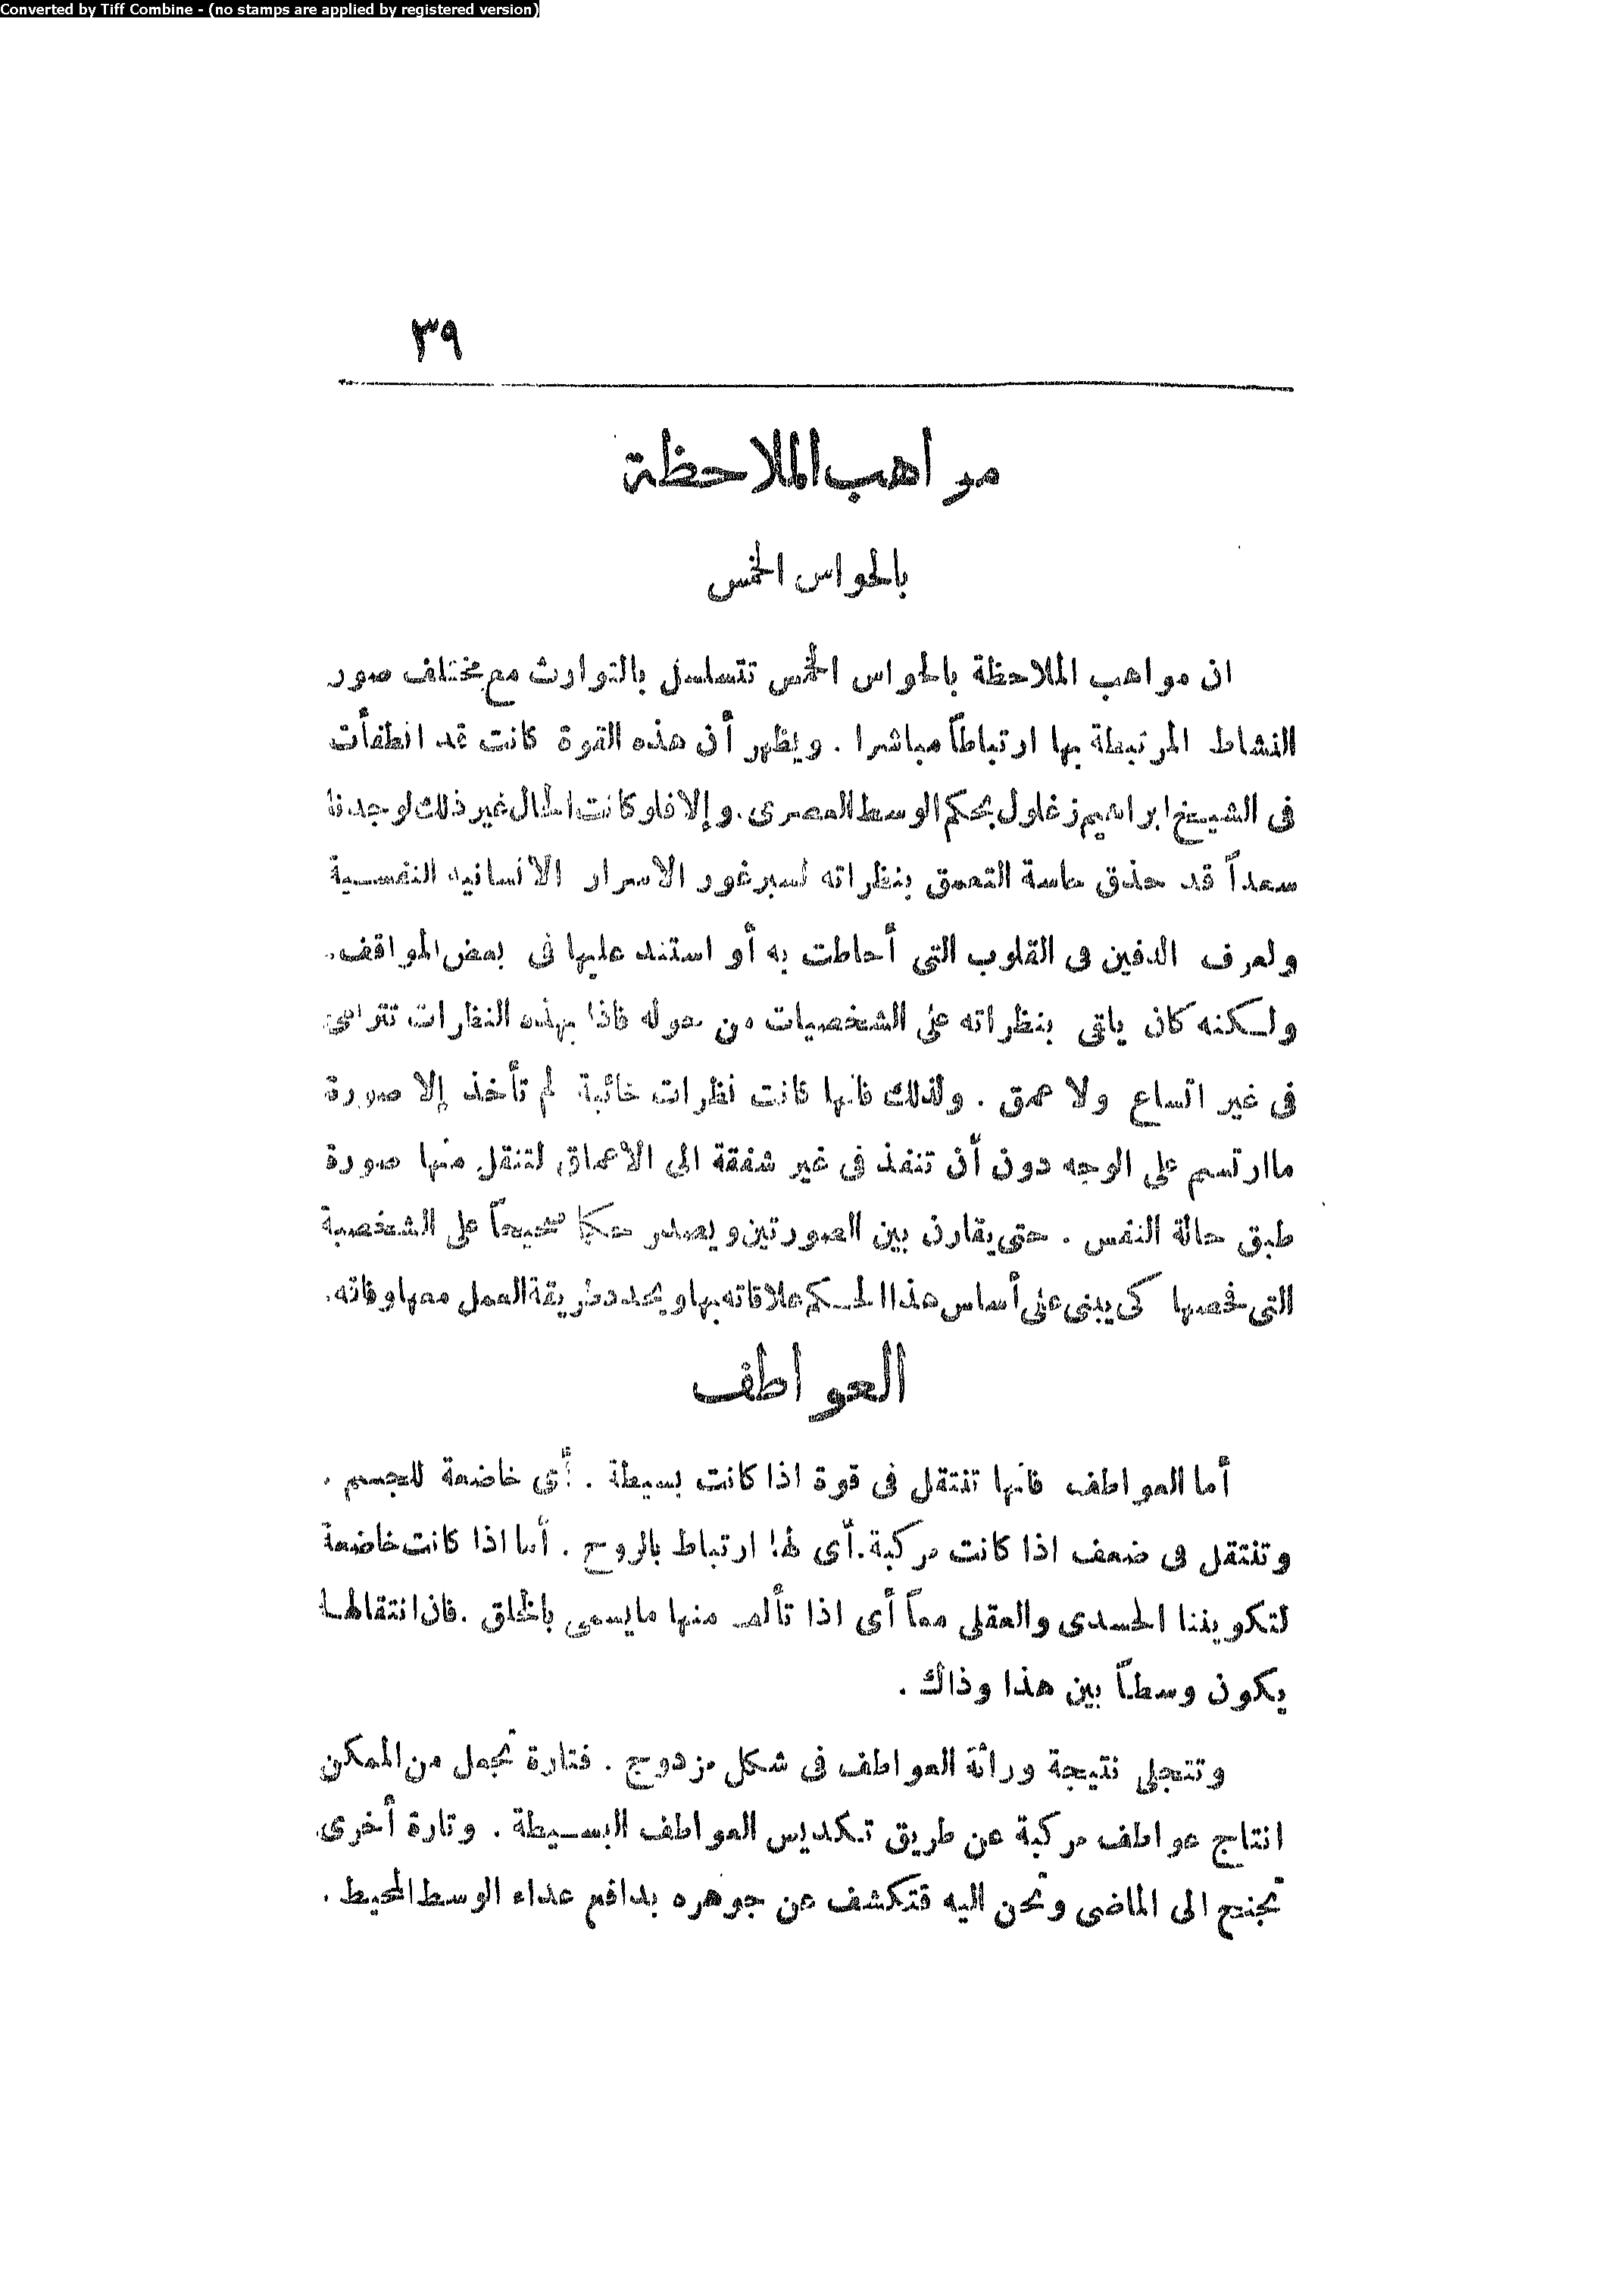 Converted by Tiff Combine - (no stamps are applied by registered version)
٣٩
مواهب الملاحظة
بالحواس الخمس
ان مواهب الملاحظة بالحواس الخمس تتسلسل بالتوارث مع مختلف صور
النشاط المرتبطة بها ارتباطاً مباشرا . ويظهر أن هذه القوة كانت قد انطفأت
فى الشيخ ابراهيم زغلول بحكم الوسط المصرى . وإلا فلو كانت الحال غير ذلك لوجدنا
سعداً قد حذق حاسة التعمق بنظراته لسبر غور الاسرار الانسانيه النفسية
ولعرف الدفين فى القلوب التى أحاطت به أو استند عليها فى بعض المواقف .
ولكنه كان يلقى بنظراته على الشخصيات من حوله فاذا بهذه النظرات تترامى
فى غير اتساع ولا عمق . ولذلك فانها كانت نظرات خائبة لم تأخذ إلا صورة
ما ارتسم على الوجه دون أن تنفذ فى غير شفقة الى الاعماق لتنقل منها صورة
طبق حالة النفس . حتى يقارن بين الصورتين ويصدر حكما صحيحاً على الشخصية
التى فحصها كى يبنى على أساس هذا الحكم علاقاته بها ويحدد طريقة العمل معها وفاته .
العواطف
أما العواطف فانها تنتقل فى قوة اذا كانت بسيطة . أى خاضعة للجسم .
وتنتقل فى ضعف اذا كانت مركبة . أى لها ارتباط بالروح . أما اذا كانت خاضعة
لتكويننا الجسدى والعقلى معاً أى اذا تألف منها ما يسمى بالخلق . فان انتقالها
يكون وسطاً بين هذا وذاك .
وتتجلى نتيجة وراثة العواطف فى شكل مزدوج . فتارة تجعل من الممكن
انتاج عواطف مركبة عن طريق تكديس العواطف البسيطة . وتارة أخرى
تجنح الى الماضى وتحن اليه فتكشف عن جوهره بدافع عداء الوسط المحيط .